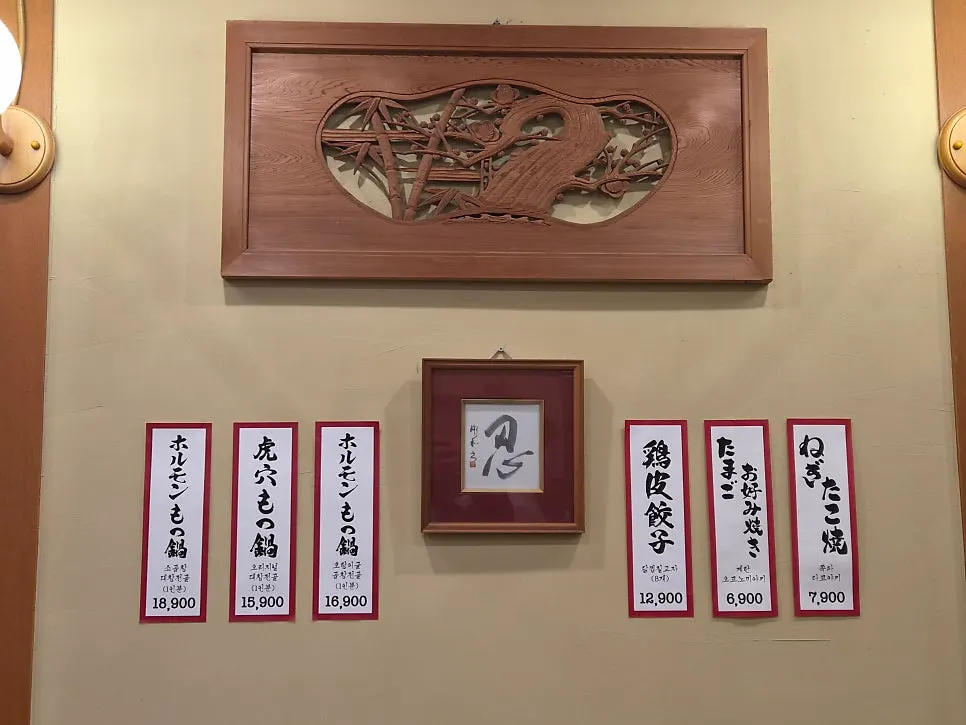 ホルモンもつ鍋
소곱창
대창전골
(1인분)
18,900
虎穴もつ鍋
오리지널
대창전골
(1인분)
15,900
ホルモンもつ鍋
곱창전골
(1인분)
16,900
忍
鶏皮餃子
닭껍질교자
(8개)
12,900
たまご
お好み焼き
계란
오코노미야키
6,900
ねぎ
たこ焼
쪽파
타코야키
7,900